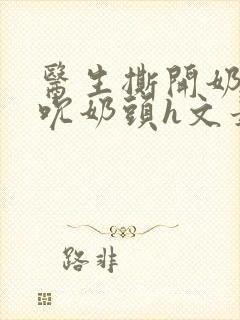 醫生撕開奶
吮奶頭h文
路非